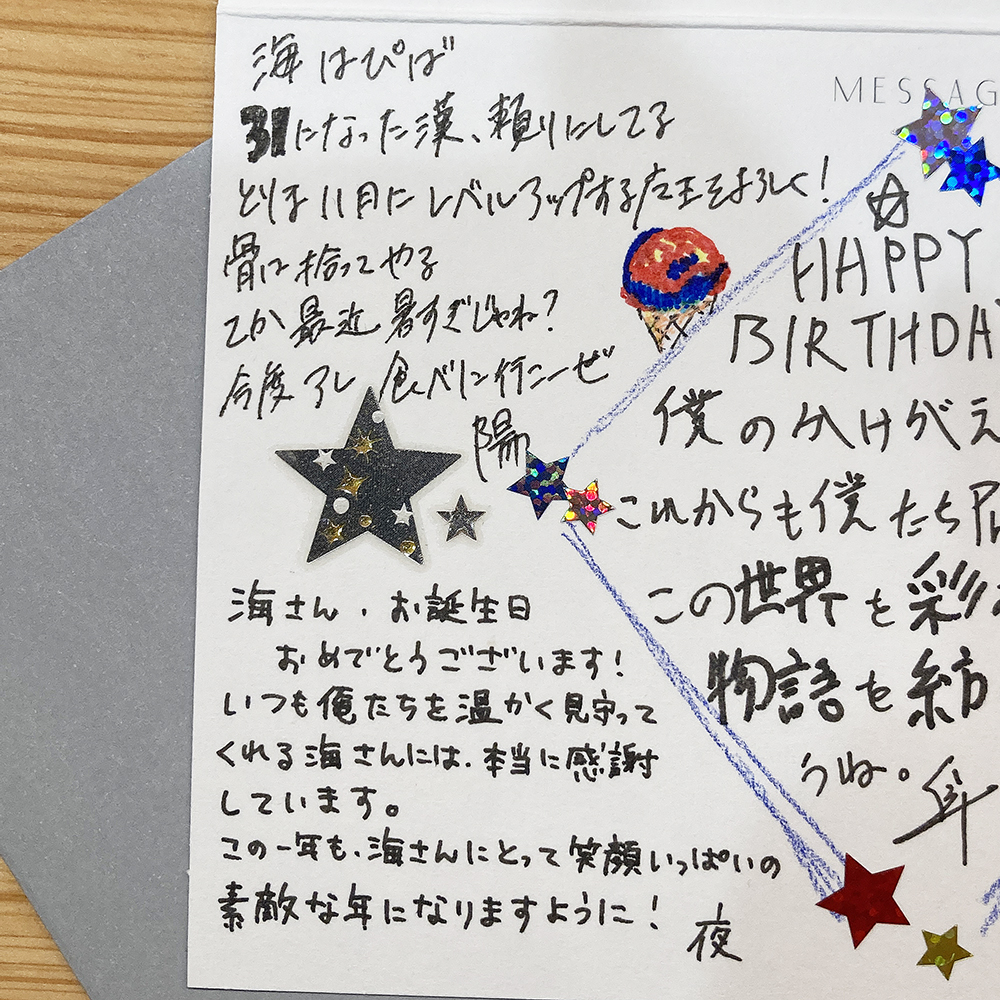 海はぴば
31になった漢、頼りにしてる
とりま11月にレベルアップする店王をよろしく!
骨は拾ってやる
てか最近暑すぎじゃね?
今度アレ食べに行こーぜ
陽
海さん、お誕生日
おめでとうございます!
いつも俺たちを温かく見守って
くれる海さんには、本当に感謝
しています。
この一年も、海さんにとって笑顔いっぱいの
素敵な年になりますように!
夜
MESSAG
☆
HAPPY
BIRTHDA
僕のかけがえ
これからも僕たち
この世界を彩
物語を紡
うね。